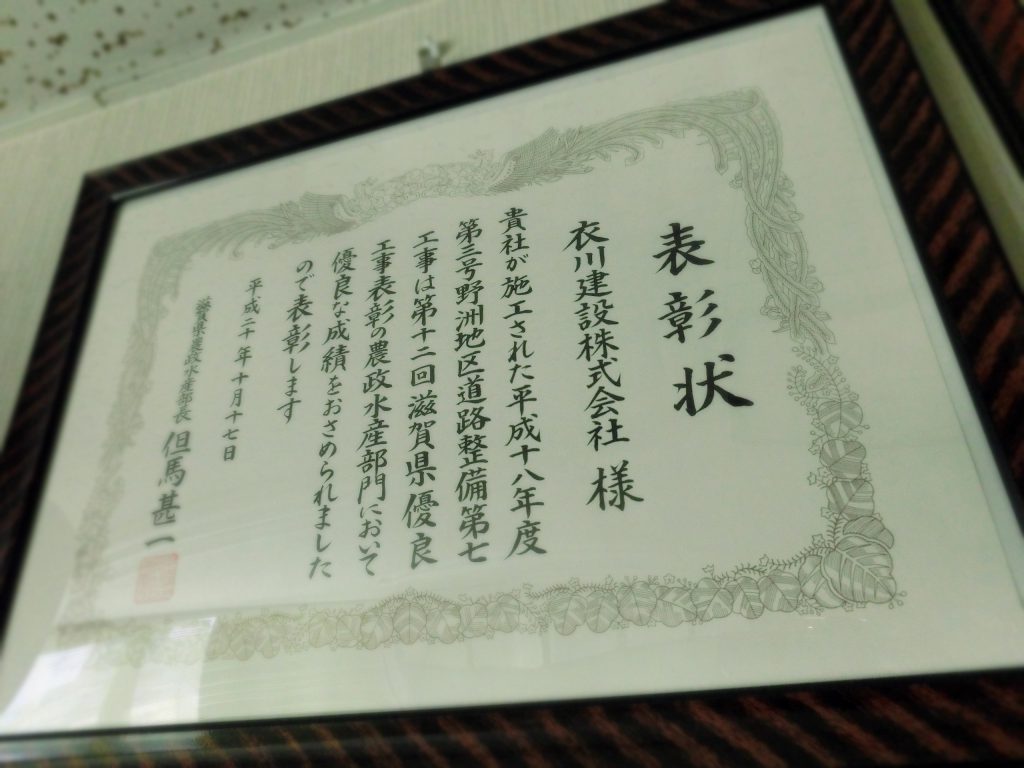 表彰状
衣川建設株式会社 様
貴社が施工された平成十八年度
第三号野洲地区道路整備第七
工事は第十二回滋賀県優良
工事表彰の農政水産部門において
優良な成績をおさめられました
ので表彰します
平成二十年十月十七日
滋賀県農政水産部長 但馬甚一